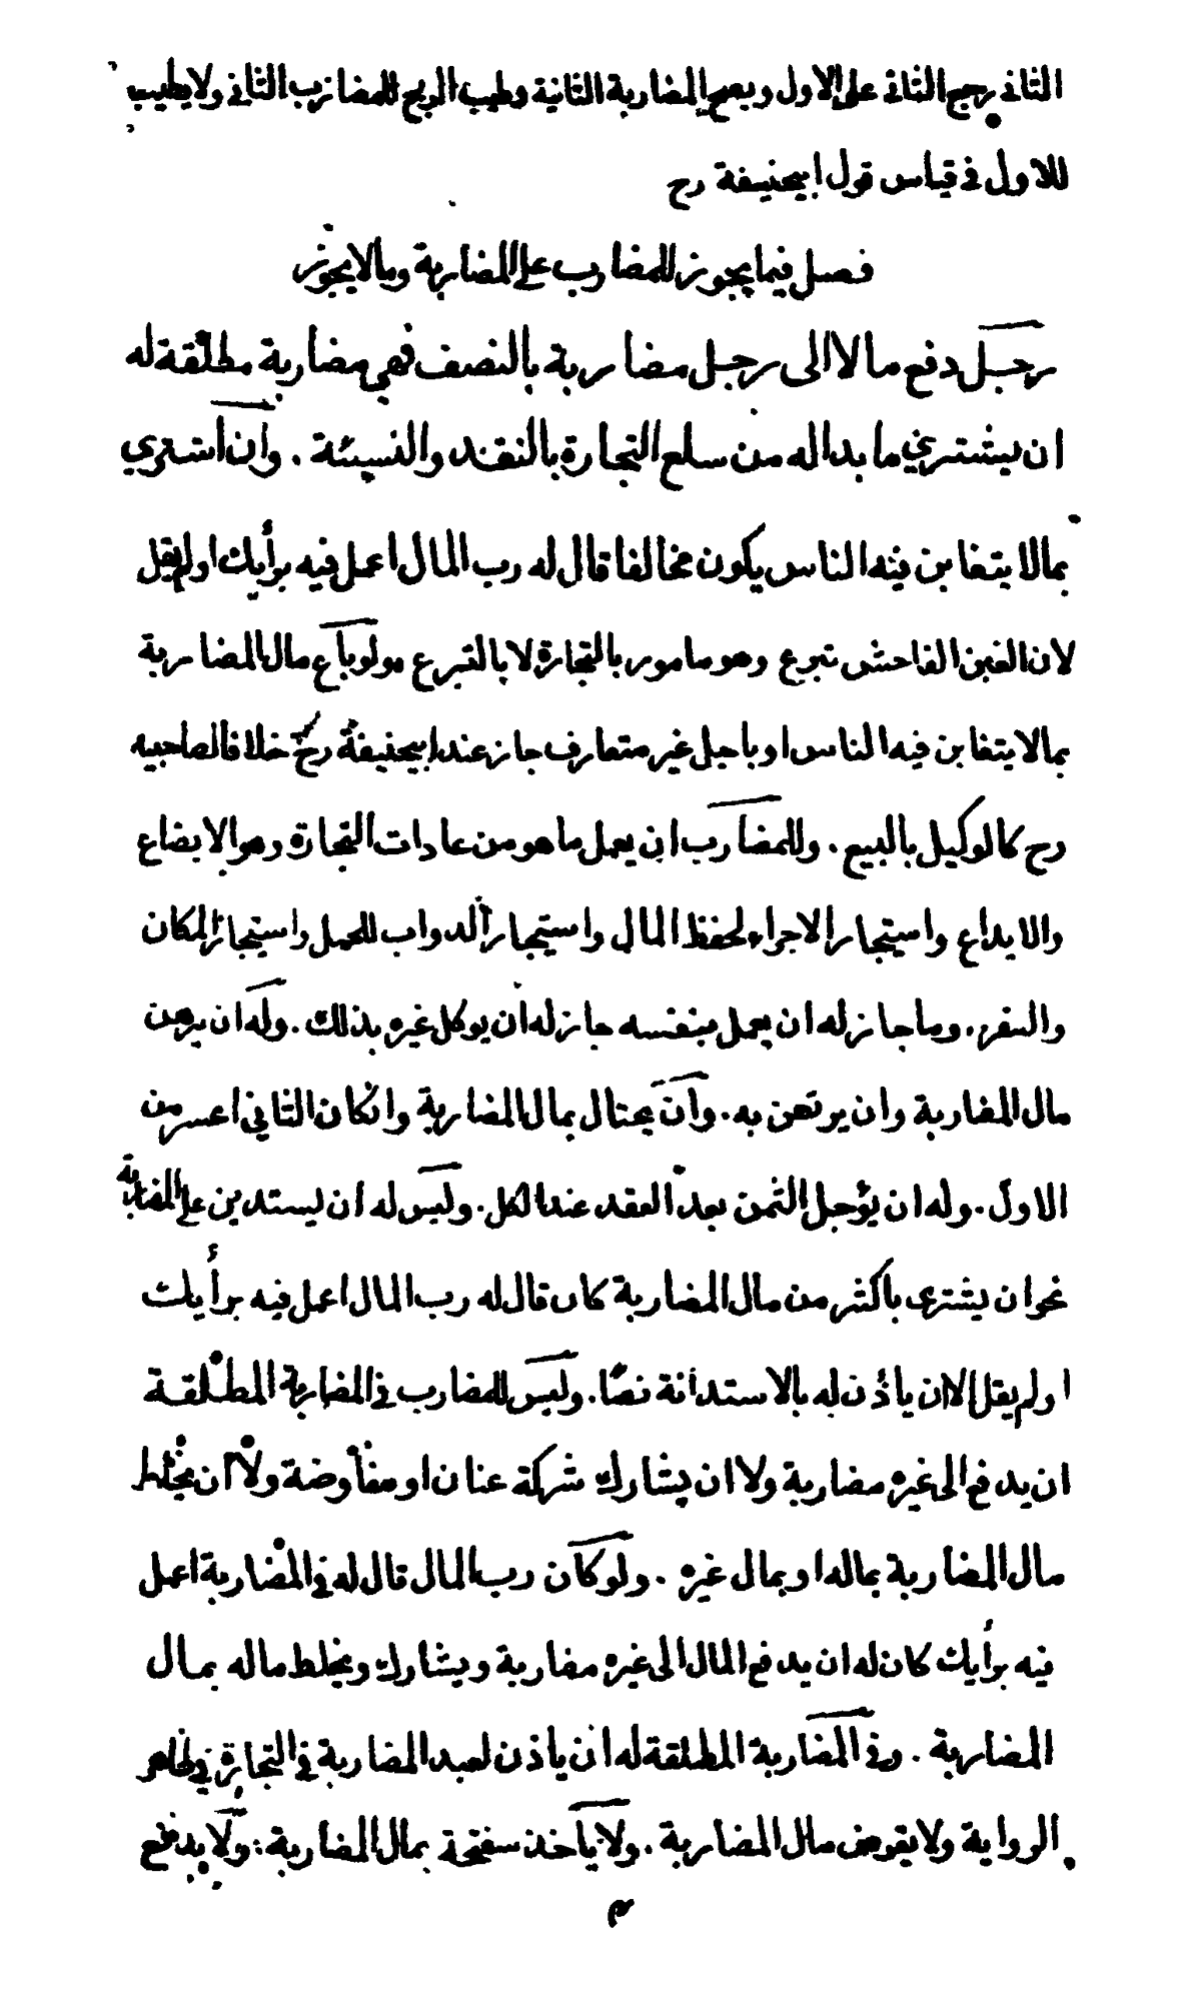 الثاني يرجع الثاني على الاول ويصح المضاربة الثانية وطيب الربح للمضارب الثاني ولا يطيب
للاول في قياس قول ابيحنيفة رح
فصل فيما يجوز للمضارب على المضاربة وما لا يجوز
رجل دفع مالا الى رجل مضاربة بالنصف فهي مضاربة مطلقة له
ان يشتري ما بدا له من سلع التجارة بالنقد والنسيئة . وان اشتري
بما لا يتغابن فيه الناس يكون مخالفا قال له رب المال اعمل فيه برأيك او لم يقل
لان الغبن الفاحش تبرع وهو مامور بالتجارة لا بالتبرع ولو باع مال المضاربة
بما لا يتغابن فيه الناس او باجل غير متعارف جاز عند ابيحنيفة رح خلافا لصاحبيه
رح كالوكيل بالبيع . وللمضارب ان يعمل ما هو من عادات التجارة وهو الابضاع
والايداع واستيجار الاجراء لحفظ المال واستيجار الدواب للحمل واستيجار المكان
والسفر . وما جاز له ان يعمل بنفسه جاز له ان يوكل غيره بذلك . وله ان يرهن
مال المضاربة وان يرتهن به . وان يحتال بمال المضاربة وانكان الثاني اعسر من
الاول . وله ان يؤجل الثمن بعد العقد عند الكل . وليس له ان يستدين على المضاربة
نحو ان يشتري باكثر من مال المضاربة كان قال له رب المال اعمل فيه برأيك
او لم يقل الا ان ياذن له بالاستدانة نصا . وليس للمضارب في المضاربة المطلقة
ان يدفع الى غيره مضاربة ولا ان يشارك شركة عنان او مفاوضة ولا ان يخلط
مال المضاربة بماله او بمال غيره . ولو كان رب المال قال له في المضاربة اعمل
فيه برأيك كان له ان يدفع المال الى غيره مضاربة ويشارك ويخلط ماله بمال
المضاربة . وفي المضاربة المطلقة له ان ياذن لعبد المضاربة في التجارة في ظاهر
الرواية ولا يقرض مال المضاربة . ولا ياخذ سفتجة بمال المضاربة : ولا يدفع